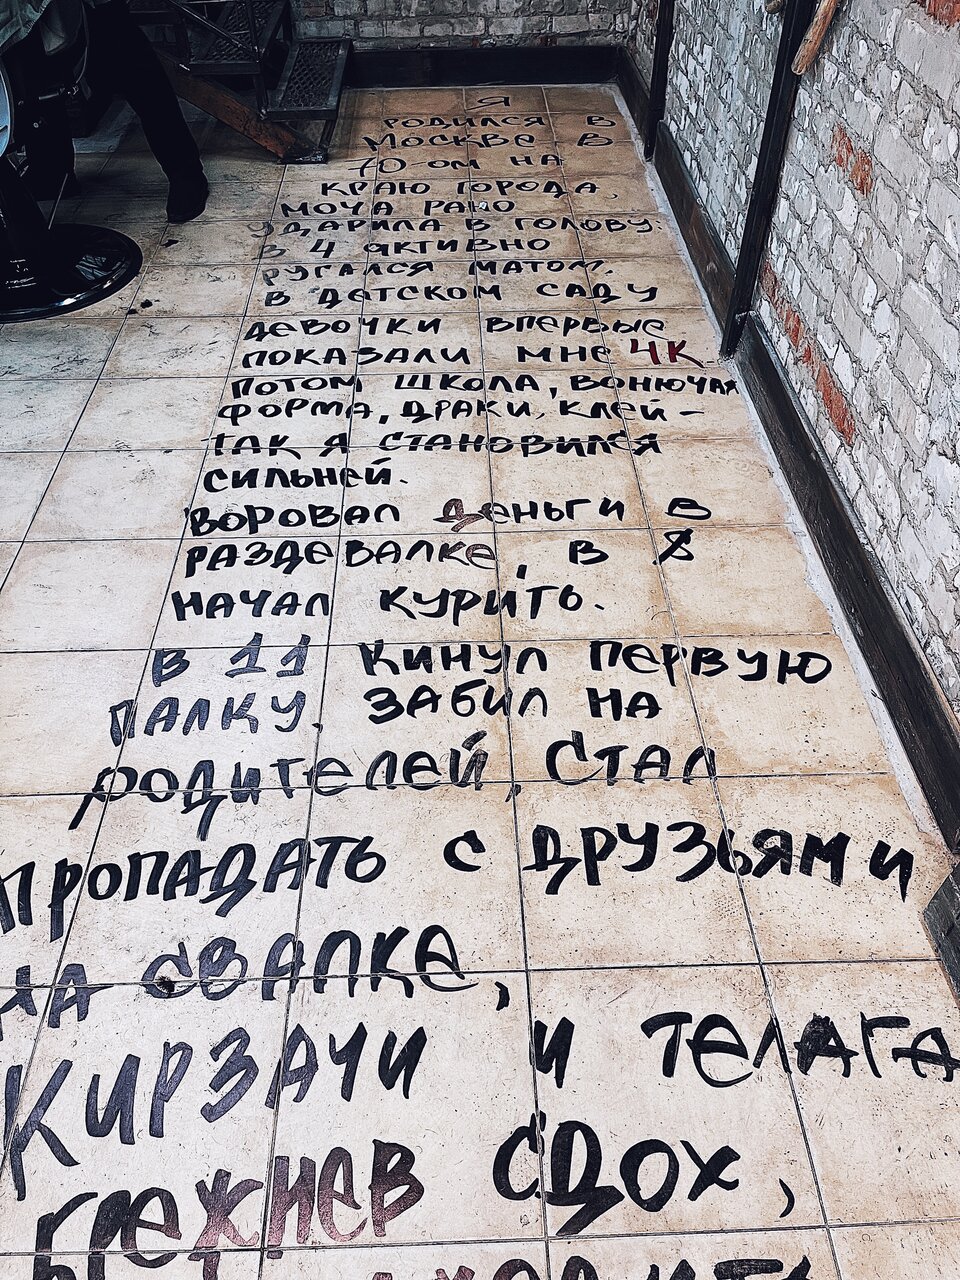 Я
РОДИЛСЯ В
МОСКВЕ В
70-ОМ НА
КРАЮ ГОРОДА,
МОЧА РАНО
УДАРИЛА В ГОЛОВУ:
В 4 АКТИВНО
РУГАЛСЯ МАТОМ.
В ДЕТСКОМ САДУ
ДЕВОЧКИ ВПЕРВЫЕ
ПОКАЗАЛИ МНЕ ЧК
ПОТОМ ШКОЛА, ВОНЮЧАЯ
ФОРМА, ДРАКИ, КЛЕЙ –
ТАК Я СТАНОВИЛСЯ
СИЛЬНЕЙ.
ВОРОВАЛ ДЕНЬГИ В
РАЗДЕВАЛКЕ, В 8
НАЧАЛ КУРИТЬ.
В 11 КИНУЛ ПЕРВУЮ
ПАЛКУ, ЗАБИЛ НА
РОДИТЕЛЕЙ, СТАЛ
ПРОПАДАТЬ С ДРУЗЬЯМИ
НА СВАЛКЕ,
КИРЗАЧИ И ТЕЛАГА
БРЕЖНЕВ СДОХ,